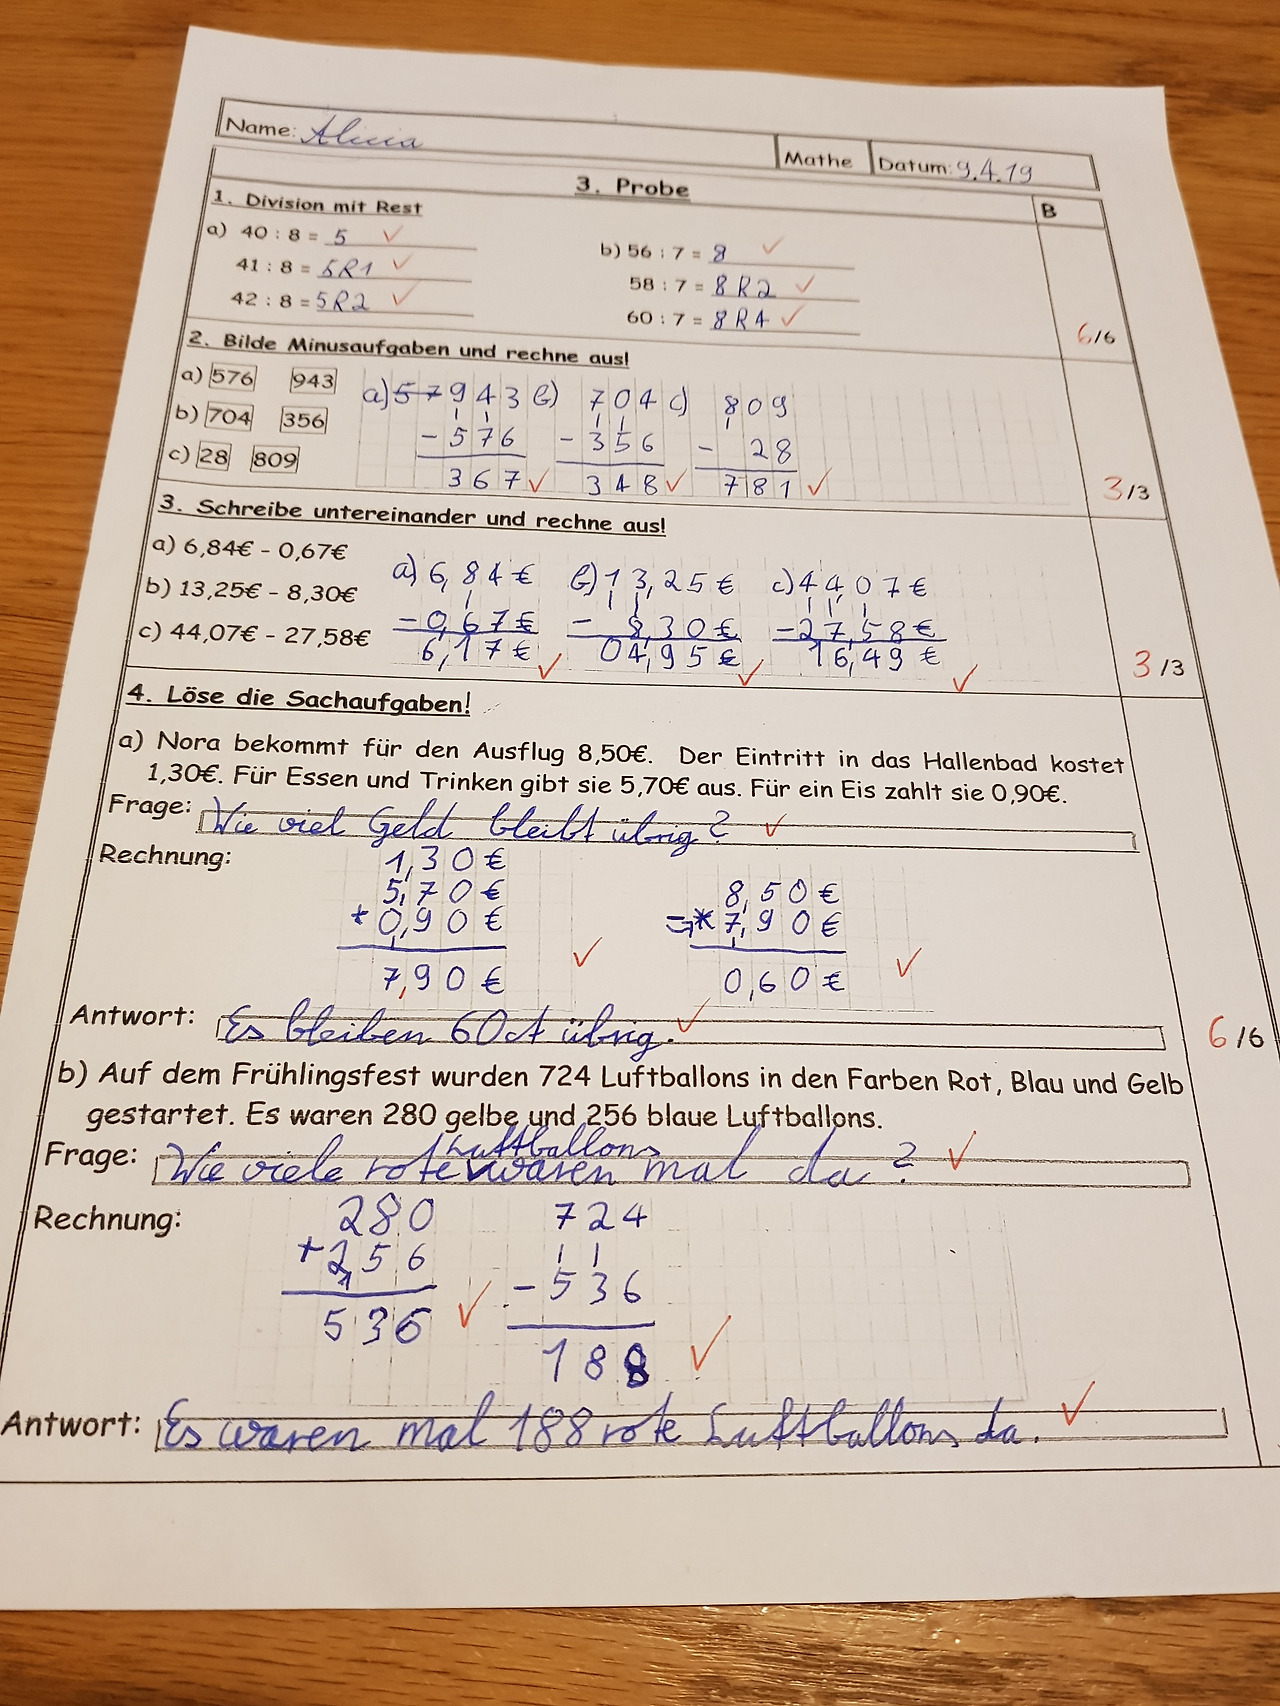 Name: Alicia Mathe Datum: 9.4.19
3. Probe
B
1. Division mit Rest
a) 40 : 8 = 5 ✓ b) 56 : 7 = 8 ✓
41 : 8 = 5R1 ✓ 58 : 7 = 8 R2 ✓
42 : 8 = 5R2 ✓ 60 : 7 = 8 R4 ✓
6/6
2. Bilde Minusaufgaben und rechne aus!
a) 576 943
b) 704 356
c) 28 809
a) 57 943 b) 704 c) 809
1 1 1 1 1
- 576 - 356 - 28
367 ✓ 348 ✓ 781 ✓
3/3
3. Schreibe untereinander und rechne aus!
a) 6,84€ - 0,67€
b) 13,25€ - 8,30€
c) 44,07€ - 27,58€
a) 6,84€ b) 13,25€ c) 44,07€
1 1 1 1 1 1
- 0,67€ - 8,30€ - 27,58€
6,17€ ✓ 04,95€ ✓ 16,49€ ✓
3/3
4. Löse die Sachaufgaben!
a) Nora bekommt für den Ausflug 8,50€. Der Eintritt in das Hallenbad kostet
1,30€. Für Essen und Trinken gibt sie 5,70€ aus. Für ein Eis zahlt sie 0,90€.
Frage: Wie viel Geld bleibt übrig? ✓
Rechnung:
1,30€
5,70€ 8,50€
+ 0,90€ - 7,90€
1 1
7,90€ ✓ 0,60€ ✓
Antwort: Es bleiben 60ct übrig. ✓
6/6
b) Auf dem Frühlingsfest wurden 724 Luftballons in den Farben Rot, Blau und Gelb
gestartet. Es waren 280 gelbe und 256 blaue Luftballons.
Luftballons
Frage: Wie viele rote waren mal da? ✓
Rechnung:
280 724
+ 256 1 1
1 - 536
536 ✓ 188 ✓
Antwort: Es waren mal 188 rote Luftballons da. ✓